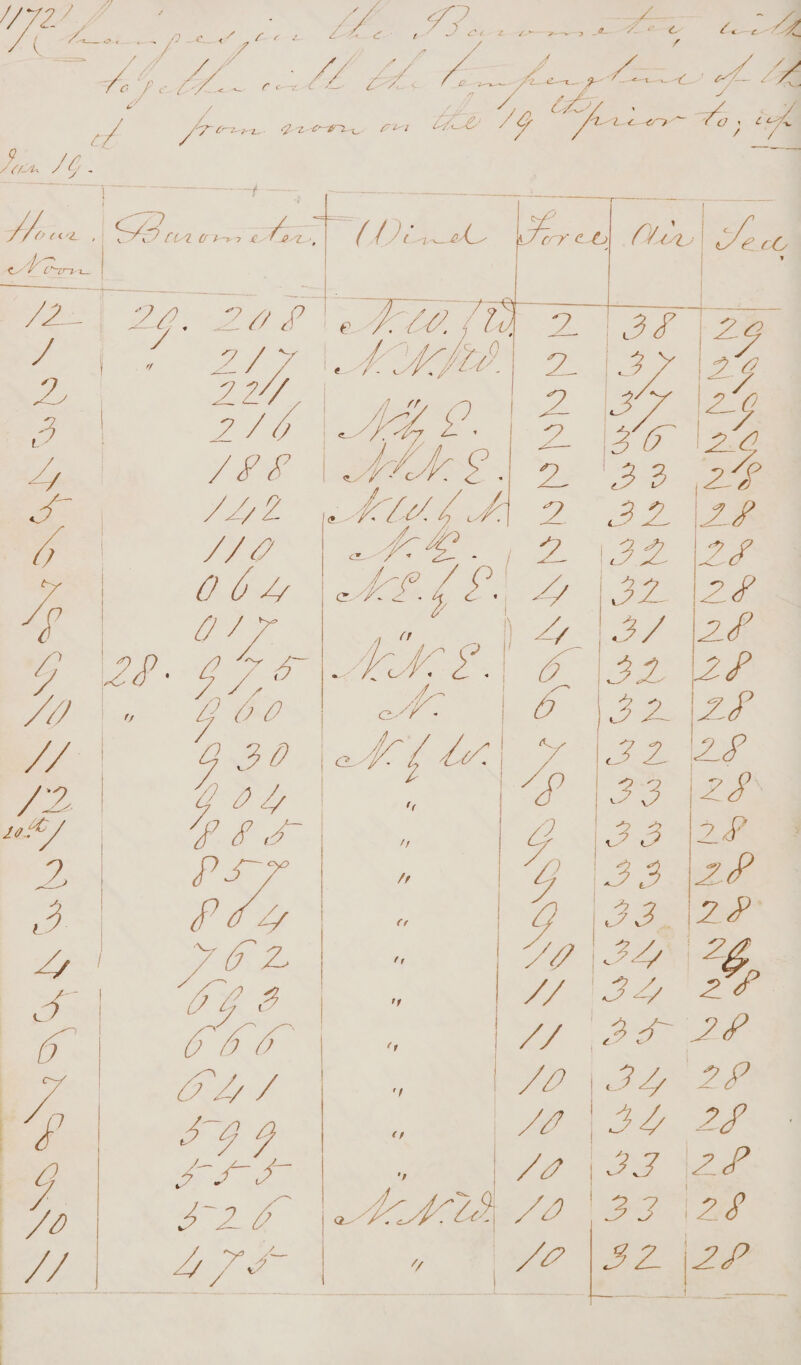 172
Changes in the Barometer, with
together with the temperature of th
d from noon on the 19th prior to, up
Jan 19.
Hour. Barometer. Wind Force Air Sea
Noon
12 29. 208 N.W. 2 38 29
1 " 217 2 37 29
2 221 " 2 37 29
3 216 E. 2 36 29
4 188 N.N.E. 2 33 28
5 142 2 32 28
6 110 N.E. 2 32 28
7 064 N.E. & E. 4 32 28
8 017 " 4 31 28
9 28. 975 N.N.E. 6 32 28
10 " 960 N. 6 32 28
11 930 N. & W. 7 32 28
12 904 " 8 33 28
20th 1 885 " 9 33 28
2 857 " 9 33 28
3 804 " 9 33 28
4 762 " 10 34 28
5 693 " 11 34 28
6 666 " 11 35 28
7 641 " 10 34 28
8 599 " 10 34 28
9 555 " 10 33 28
10 526 N.N.W. 10 33 28
11 475 " 10 32 28